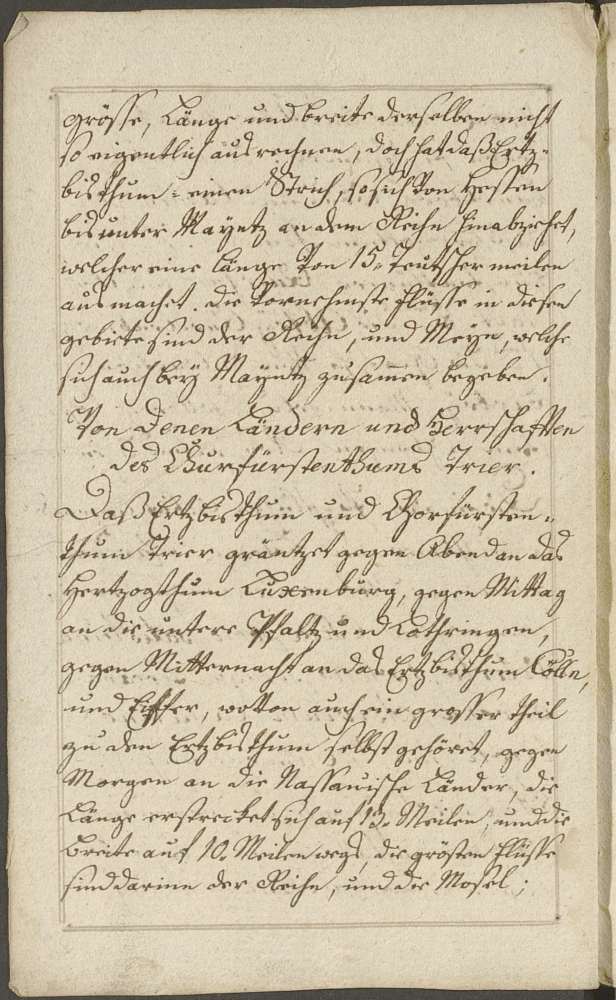 grösse, Länge und breite derselben nicht
so eigentlich ausrechnen, doch hat daß Ertz-
bisthum einen Strich, so sich von Hessen
bis unter Mayntz an dem Reihn hinabziehet,
welcher eine länge von 15. Teutscher meilen
ausmachet. die vornehmste flüsse in diesen
gebiete sind der Reihn, und Meyn, welche
sich auch bey Mayntz zusamen begeben.
Von denen Ländern und Herrschafften
des Churfürstenthums Trier.
Daß Ertzbisthum und Chorfürsten-
thum Trier gräntzet gegen Abend an das
Hertzogthum Luxenburg, gegen Mittag
an die untere Pfaltz und Lothringen,
gegen Mitternacht an das Ertzbisthum Cölln,
und Eiffer, wovon auch ein grosser theil
zu dem Ertzbisthum selbst gehöret, gegen
Morgen an die Nassauische Länder, die
Länge erstrecket sich auf 13. Meilen, und die
breite auf 10. Meilen wegs, die grösten flüsse
sind darinn der Reihn, und die Mosel;